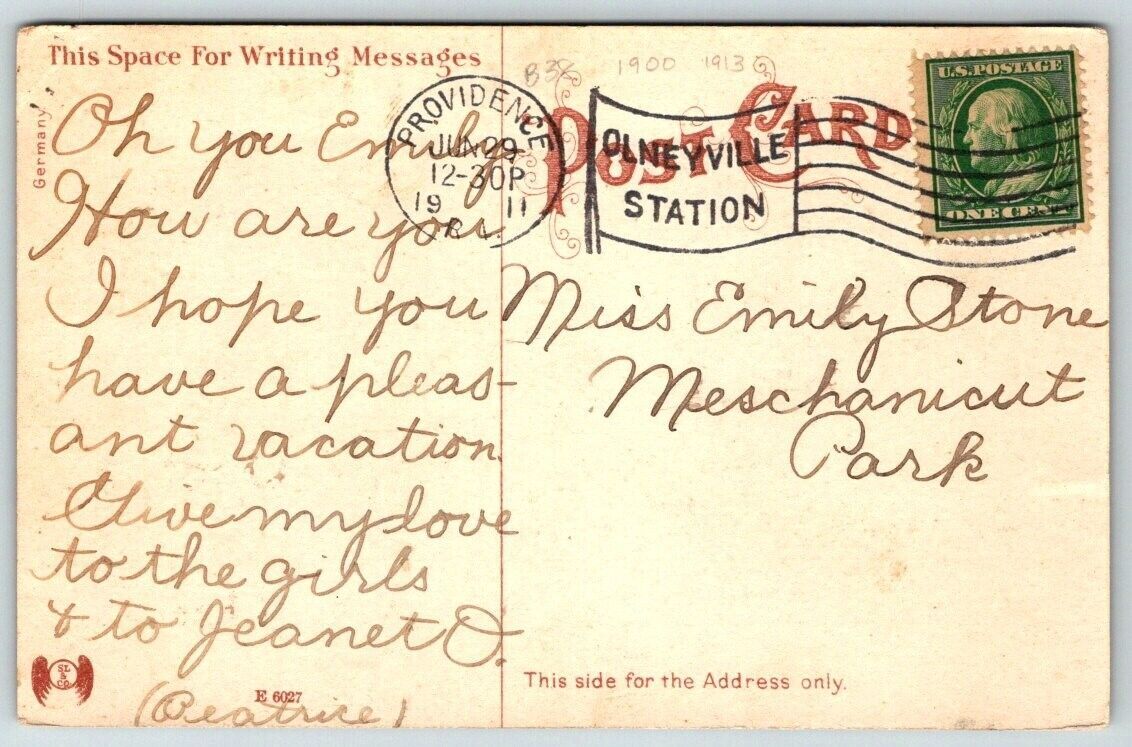 This Space For Writing Messages
Germany
Oh you Emily
How are you
I hope you
have a pleas-
ant vacation
Give my love
to the girls
& to Jeanet O.
(Beatrice)
SL
& Co
E 6027
B38 1900 1913
POST CARD
PROVIDENCE
JUN 29
12-30P
19 11
R.I.
OLNEYVILLE
STATION
U.S. POSTAGE
ONE CENT
Miss Emily Stone
Meschanicut
Park
This side for the Address only.